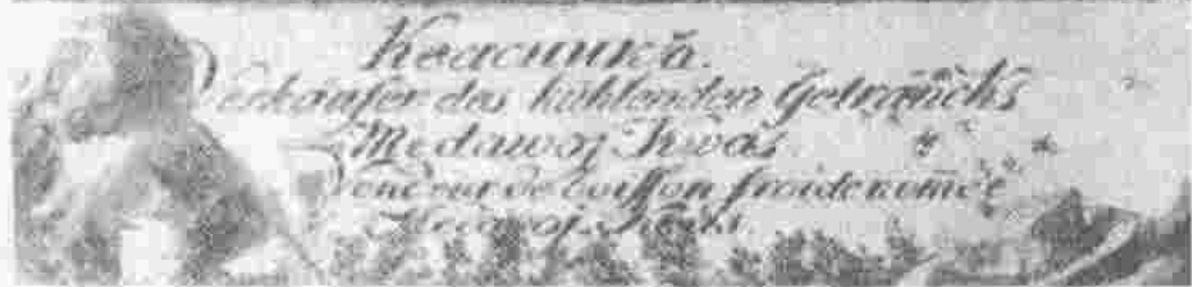 Квасникъ.
Verkäufer des kühlenden Geträncks
Medawoj Kwas.
Vendeur de boisson froide nomée
Medawoj Kwas.